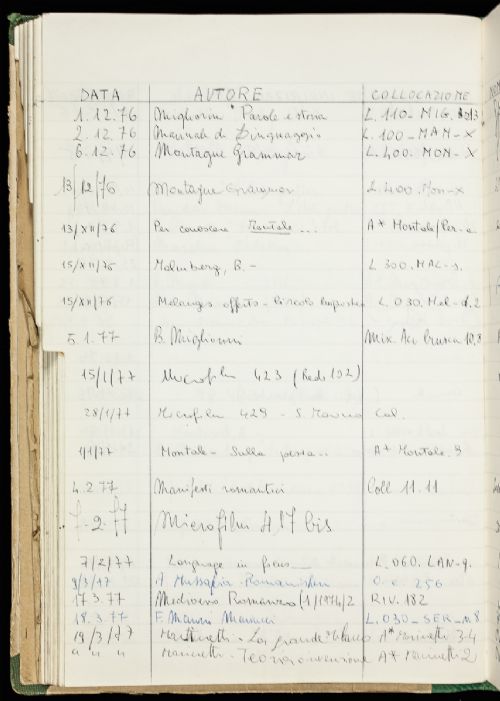 DATA AUTORE COLLOCAZIONE
1.12.76 Migliorini Parole e storia L.110-MIG.
2.12.76 Manuale di Linguaggio L.100-MAN-X
6.12.76 Montague Grammar L.400.MON-X
13/12/76 Montague Grammar L.400.Mon-X
13/XII/76 Per conoscere Montale... A* Montale/Per-a
15/XII/76 Malmberg, B.- L 300.MAL-s.
15/XII/76 Melanges offerts - L 030.Mel-d.2
5.1.77 B. Migliorini Mix. Acc Crusca 10,8
15/1/77 Microfilm 423 (Redi 192)
28/1/77 Microfilm 429 - S Marco Cal.
1/1/77 Montale - Sulla poesia.. A* Montale.3
4.2.77 Manifesti romantici Coll 11.11
7-2-77 Microfilm A 17 bis
7/2/77 Language in focus L.060.LAN-9.
9/3/77 A. Mussafia - 256
17.3.77 Medioevo Romanzo (1/1974/2 RIV.182
18.3.77 F. Mannucci L.030-SER-M8
19/3/77 Marinetti - La grande Milano A* Marinetti 34
" " " Marinetti - Teoria e invenzione A* Marinetti 2